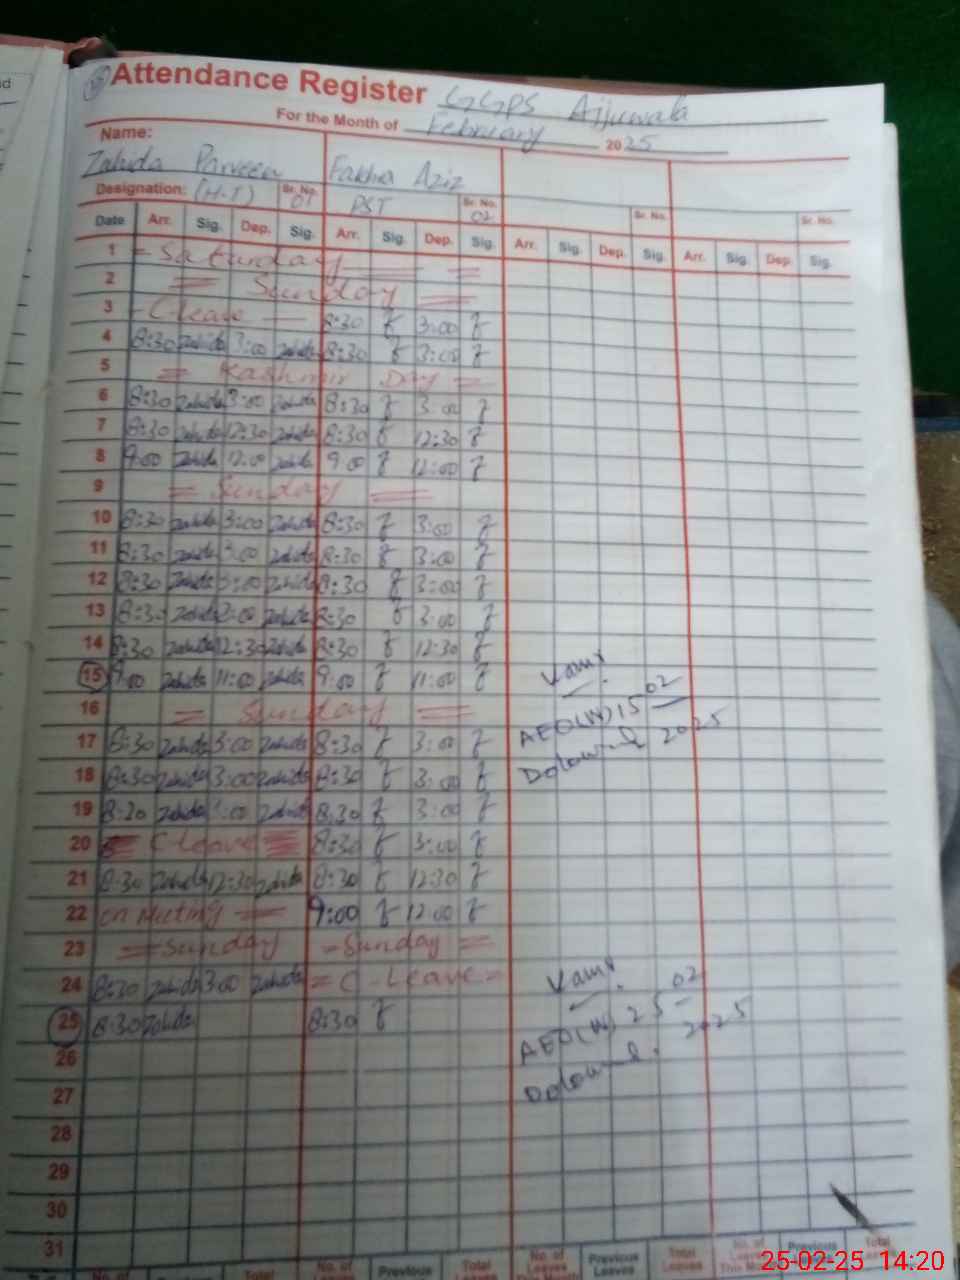 Attendance Register GGPS Ajjuwala
For the Month of February 2025
Name:
Zahida Parveen Fakhra Aziz
Designation: (H-T) Sr. No. 01 PST Sr. No. 02 Sr. No. Sr. No.
Date Arr. Sig. Dep. Sig. Arr. Sig. Dep. Sig. Arr. Sig. Dep. Sig. Arr. Sig. Dep. Sig.
1 = Saturday =
2 = Sunday =
3 - C leave - 8:30 3:00
4 8:30 Zahida 3:00 Zahida 8:30 3:00
5 = Kashmir Day =
6 8:30 Zahida 3:00 Zahida 8:30 3:00
7 8:30 Zahida 12:30 Zahida 8:30 12:30
8 9:00 Zahida 12:00 Zahida 9:00 12:00
9 = Sunday =
10 8:30 Zahida 3:00 Zahida 8:30 3:00
11 8:30 Zahida 3:00 Zahida 8:30 3:00
12 8:30 Zahida 3:00 Zahida 8:30 3:00
13 8:30 Zahida 3:00 Zahida 8:30 3:00
14 8:30 Zahida 12:30 Zahida 8:30 12:30
15 9:00 Zahida 11:00 Zahida 9:00 11:00
16 = Sunday =
AEO(W) 15 02
2025
17 8:30 Zahida 3:00 Zahida 8:30 3:00
18 8:30 Zahida 3:00 Zahida 8:30 3:00
19 8:30 Zahida 3:00 Zahida 8:30 3:00
20 C leave 8:30 3:00
21 8:30 Zahida 12:30 Zahida 8:30 12:30
22 on Meeting 9:00 12:00
23 = Sunday = Sunday =
24 8:30 Zahida 3:00 Zahida = C - Leave =
25 8:30 Zahida 8:30
AEO(W) 25 02
2025
26
27
28
29
30
31
Total No. of Previous Total Leaves No. of Leaves This Month Previous Leaves Total Leaves No. of Leaves This Month Previous Leaves Total Leaves
25-02-25 14:20